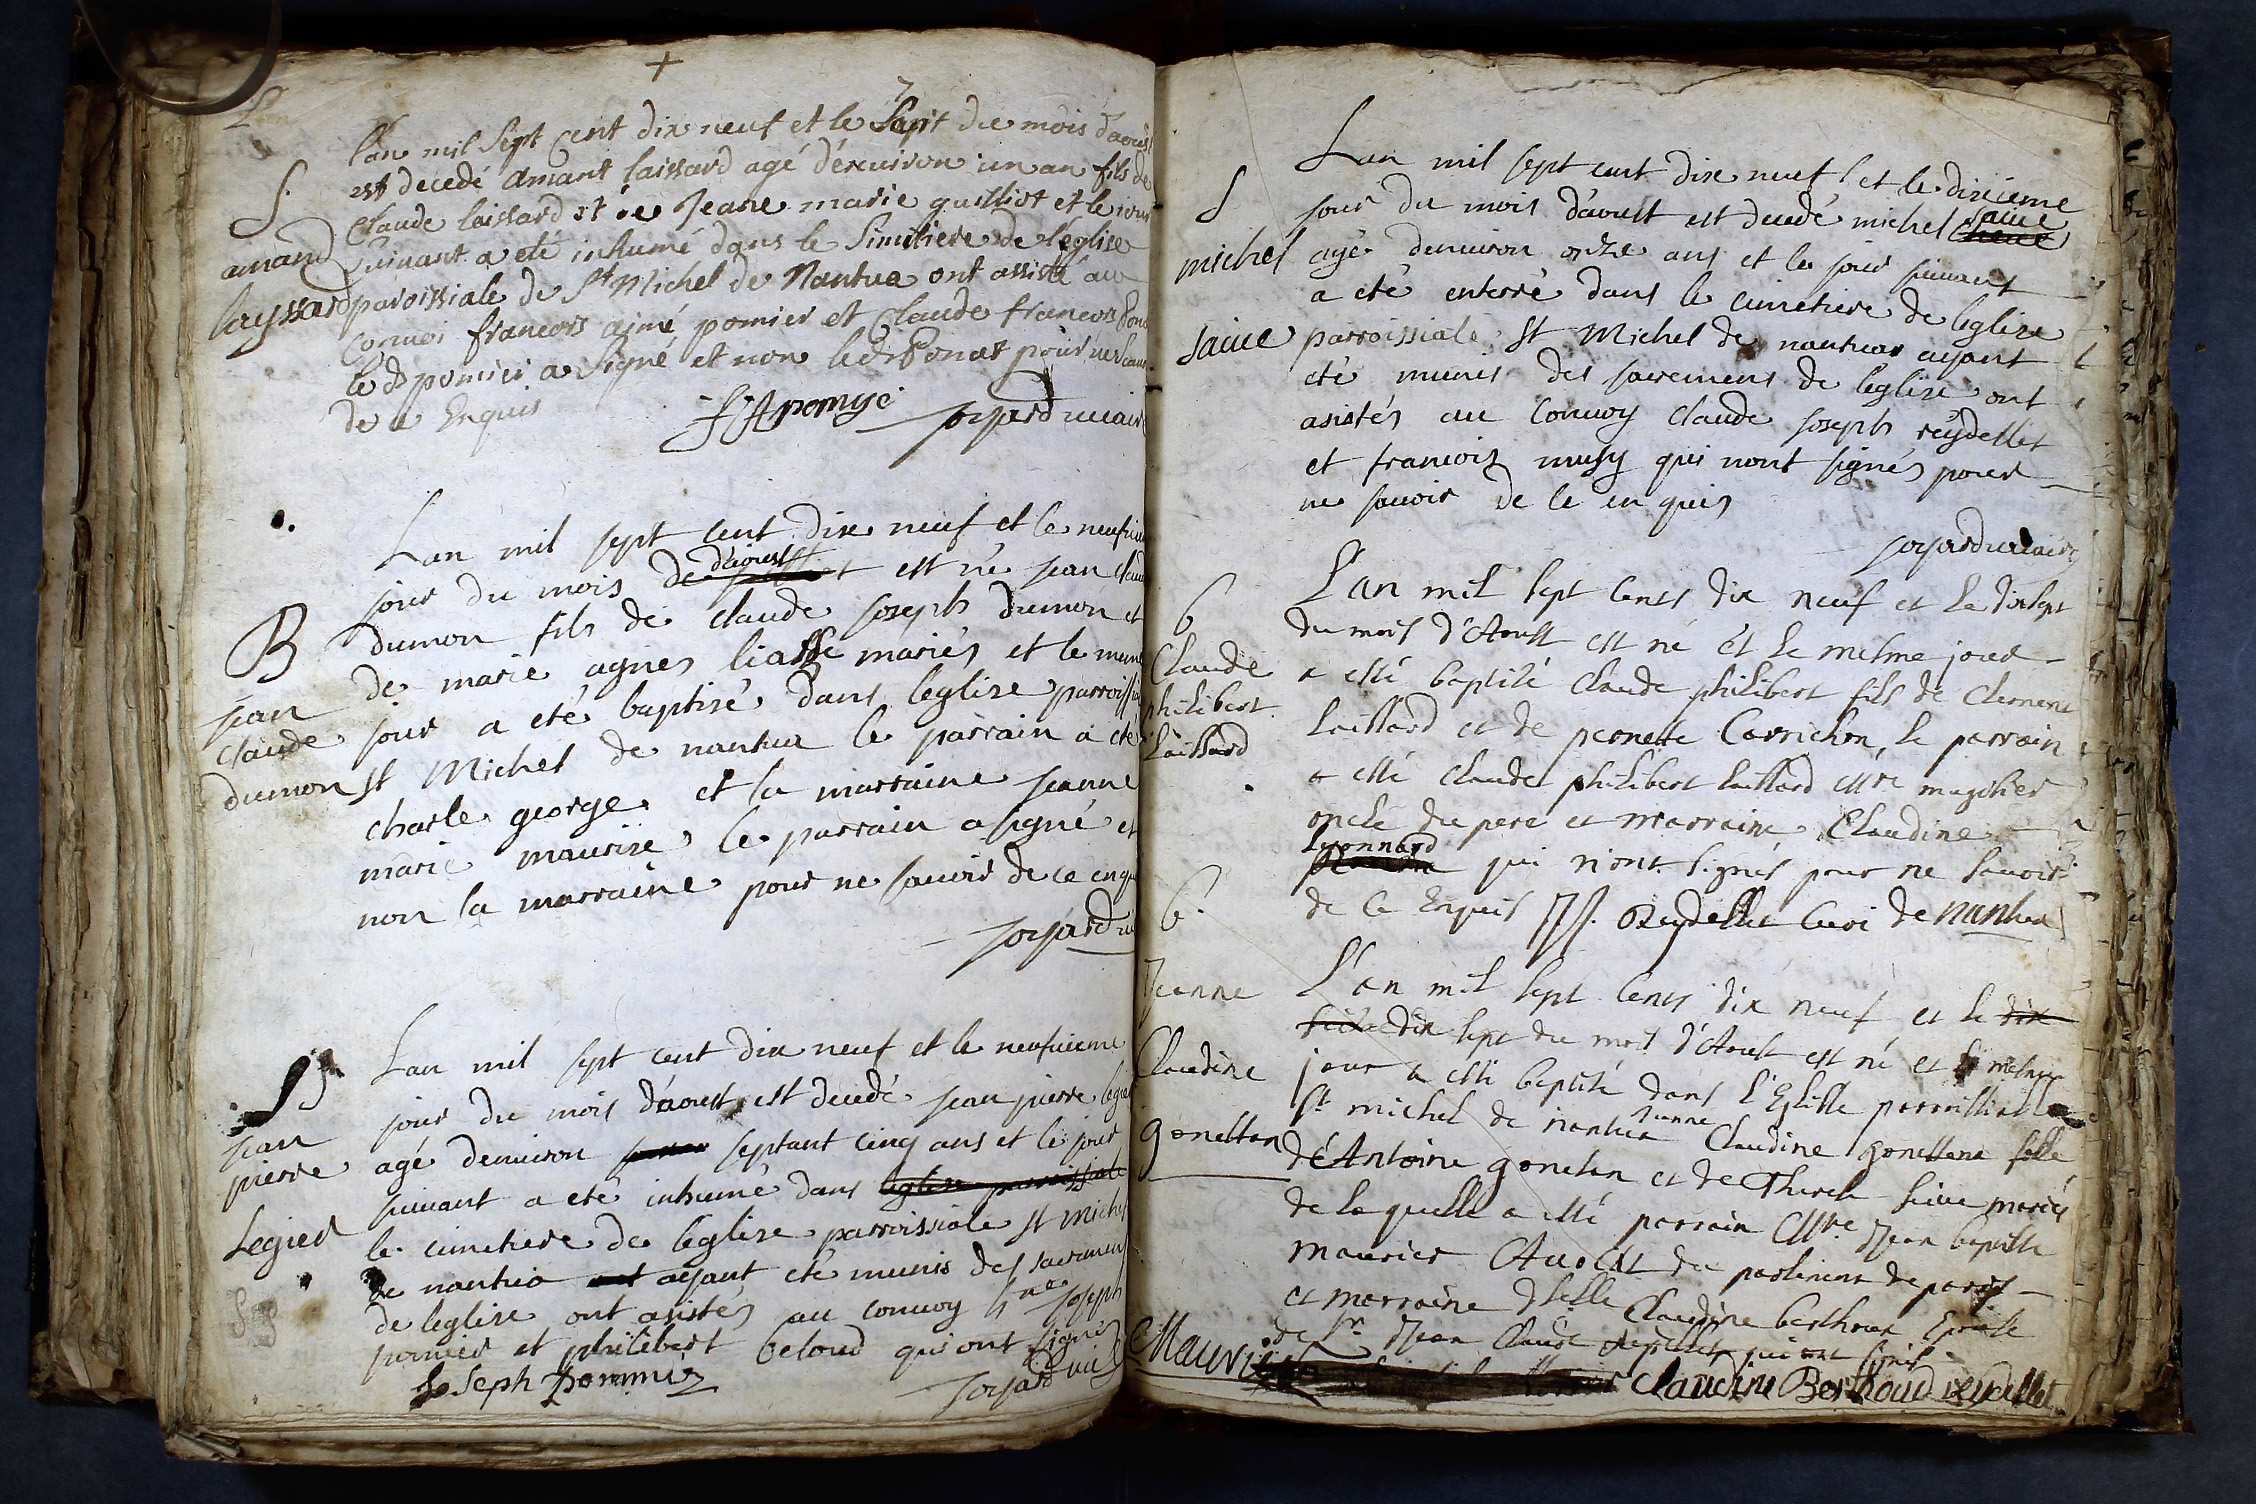 +
7
S.
amand
layssard
l'an mil Sept Cent dix neuf et le Sapt du mois d'aoust
est decedé amant laissard agé d'enuiron un an fils de
Claude laissard et de Jeane marie guilliot et le iour
Suiuant a eté inhumé dans le Simitiere de leglise
paroissiale de St Michel de Nantua ont assisté au
Conuoi francois aimé pomier et Claude francois
le d pomier a Signé et non led Ponat pour ne scauoir
de ce Enquis
F A pomyé
soyard uicair
B
jean
claude
dumon
Lan mil sept cent dix neuf et le neufuieme
jour du mois d'aoust est né jean claude
dumon fils de claude joseph dumon et
de marie agnes liasse mariés et le meme
jour a eté baptisé dans leglise parroissiale
st Michel de nantua le parrain a eté
charle george et la marraine jeanne
marie maurise le parrain a signé et
non la marraine pour ne sauoir de ce enquis
soyard
S
jean
pierre
Legier
Lan mil sept cent dix neuf et le neufuieme
jour du mois d'aoust est decedé jean pierre legier
agé denuiron septant cinq ans et le jour
suiuant a eté inhumé dans eglise parroissiale
le cimetiere de leglise parroissiale st michel
de nantua ayant eté munis des sacremens
de leglise ont asistés au conuoy joseph
pernier et philibert beloud qui ont signés
Joseph pommiez
soyard uic
S
michel
saiue
Lan mil sept cent dix neuf et le dixieme
jour du mois d'aoust est decedé michel saiue
agé denuiron onze ans et le jour suiuant
a eté enterré dans le cimetiere de leglise
parroissiale St Michel de nantua ayant
eté munis des sacremens de leglise ont
asistés au conuoy claude joseph reydellet
et francois musy qui nont signés pour
ne sauoir de ce en quis
soyard uicaire
b
Claude
philibert
Laissard
L'an mil sept Cents dix neuf et Le dixsept
du mois d'Aoust est né et le mesme jour
a esté baptisé Claude philibert fils de Clement
Laissard et de pernette Carrichon, le parrain
a esté Claude philibert Laissard
oncle du pere et marraine Claudine
Lyonnard qui n'ont signés pour ne sauoir
de ce Enquis JJ. Reydellet Curé de Nantua
b.
Jeanne
Claudine
gonettan
L'an mil sept Cents dix neuf et le dix
dix sept du mois d'Aoust est né et le mesme
jour a esté baptisé dans l'Eglise parroissialle
St michel de nantua Jeanne Claudine gonettan fille
d'Antoine gonettan et de Therese seiue mariés
de laquelle a esté parrain Mre Jean baptiste
maurier Auocat du parlement de paris
et marraine dlelle Claudine berthoud Epouse
de Sr Jean Claude Reydellet qui ont signé
Maurier
claudine Berthoud reydellet